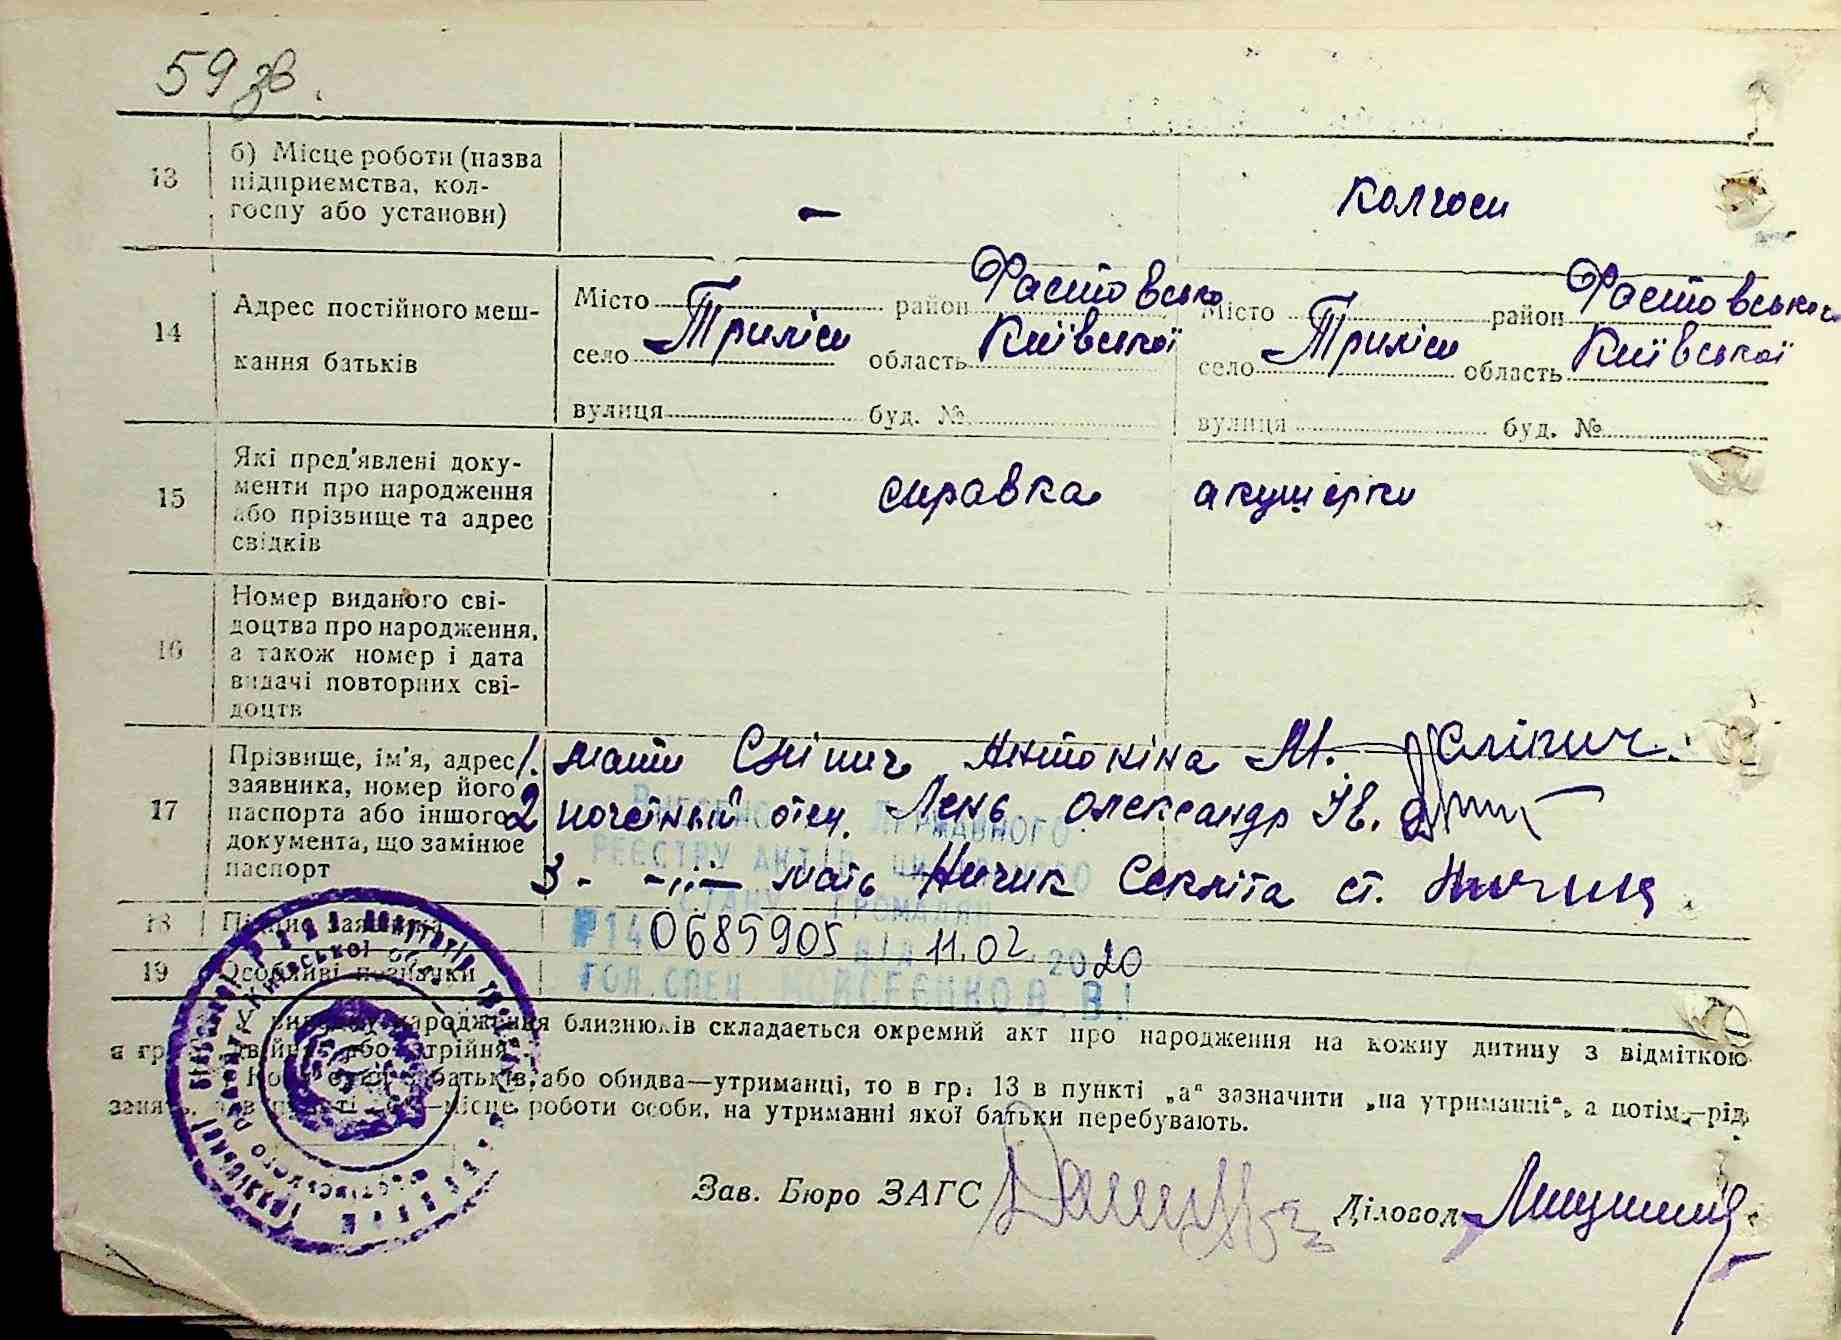 59 зв.
13
б) Місце роботи (назва
підприємства, кол-
госпу або установи)
—
колгосп
14
Адрес постійного меш-
кання батьків
Місто район Фастовсько
село Триліси область Київської
вулиця буд. №
Місто район Фастовської
село Триліси область Київської
вулиця буд. №
15
Які пред'явлені доку-
менти про народження
або прізвище та адрес
свідків
справка акушерки
16
Номер виданого сві-
доцтва про народження,
а також номер і дата
видачі повторних сві-
доцтв
17
Прізвище, ім'я, адрес
заявника, номер його
паспорта або іншого
документа, що замінює
паспорт
1. мати Сліпич Антоніна М. Сліпич
2 почетный отец. Лень Олександр Ів.
3 - -,,- мать Ничик Секліта ст. Ничик
ДЕРЖАВНОГО
РЕЄСТРУ АКТІВ ЦИВІЛЬНОГО
СТАНУ ГРОМАДЯН
№ 140685905 від 11.02.2020
ГОЛ. СПЕЦ. МОЙСЕЄНКО В.В.
18 Підпис заявника
19 Особливі позначки
У випадку народження близнюків складається окремий акт про народження на кожну дитину з відміткою
в гр. двійня або трійня.
батьків, або обидва—утриманці, то в гр. 13 в пункті „а“ зазначити „на утриманні“, а потім—рід
занять, а в пункті місце роботи особи, на утриманні якої батьки перебувають.
Зав. Бюро ЗАГС
Діловод